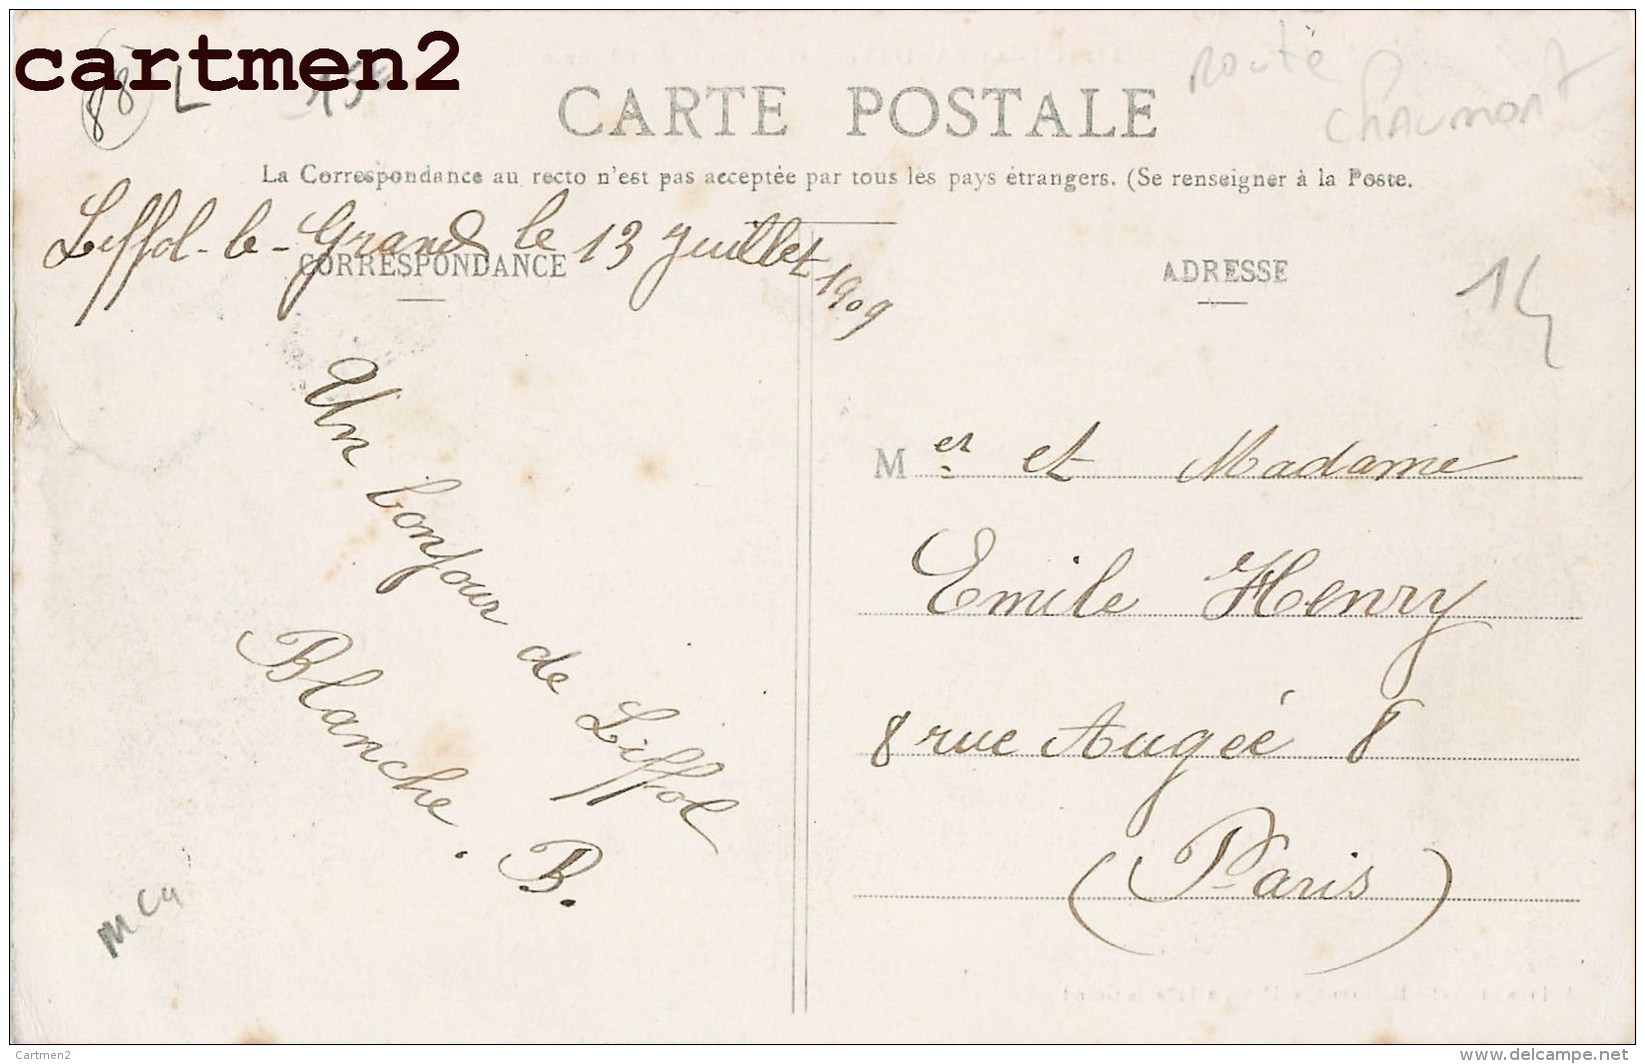 cartmen2
88 L 159
Route
Chaumont
CARTE POSTALE
La Correspondance au recto n'est pas acceptée par tous les pays étrangers. (Se renseigner à la Poste.
Liffol-le-Grand le 13 Juillet 1909
CORRESPONDANCE
Un bonjour de Liffol
Blanche. B.
ADRESSE
14
M er et Madame
Emile Henry
8 rue Augée 8
(Paris)
Cartmen2
www.delcampe.net